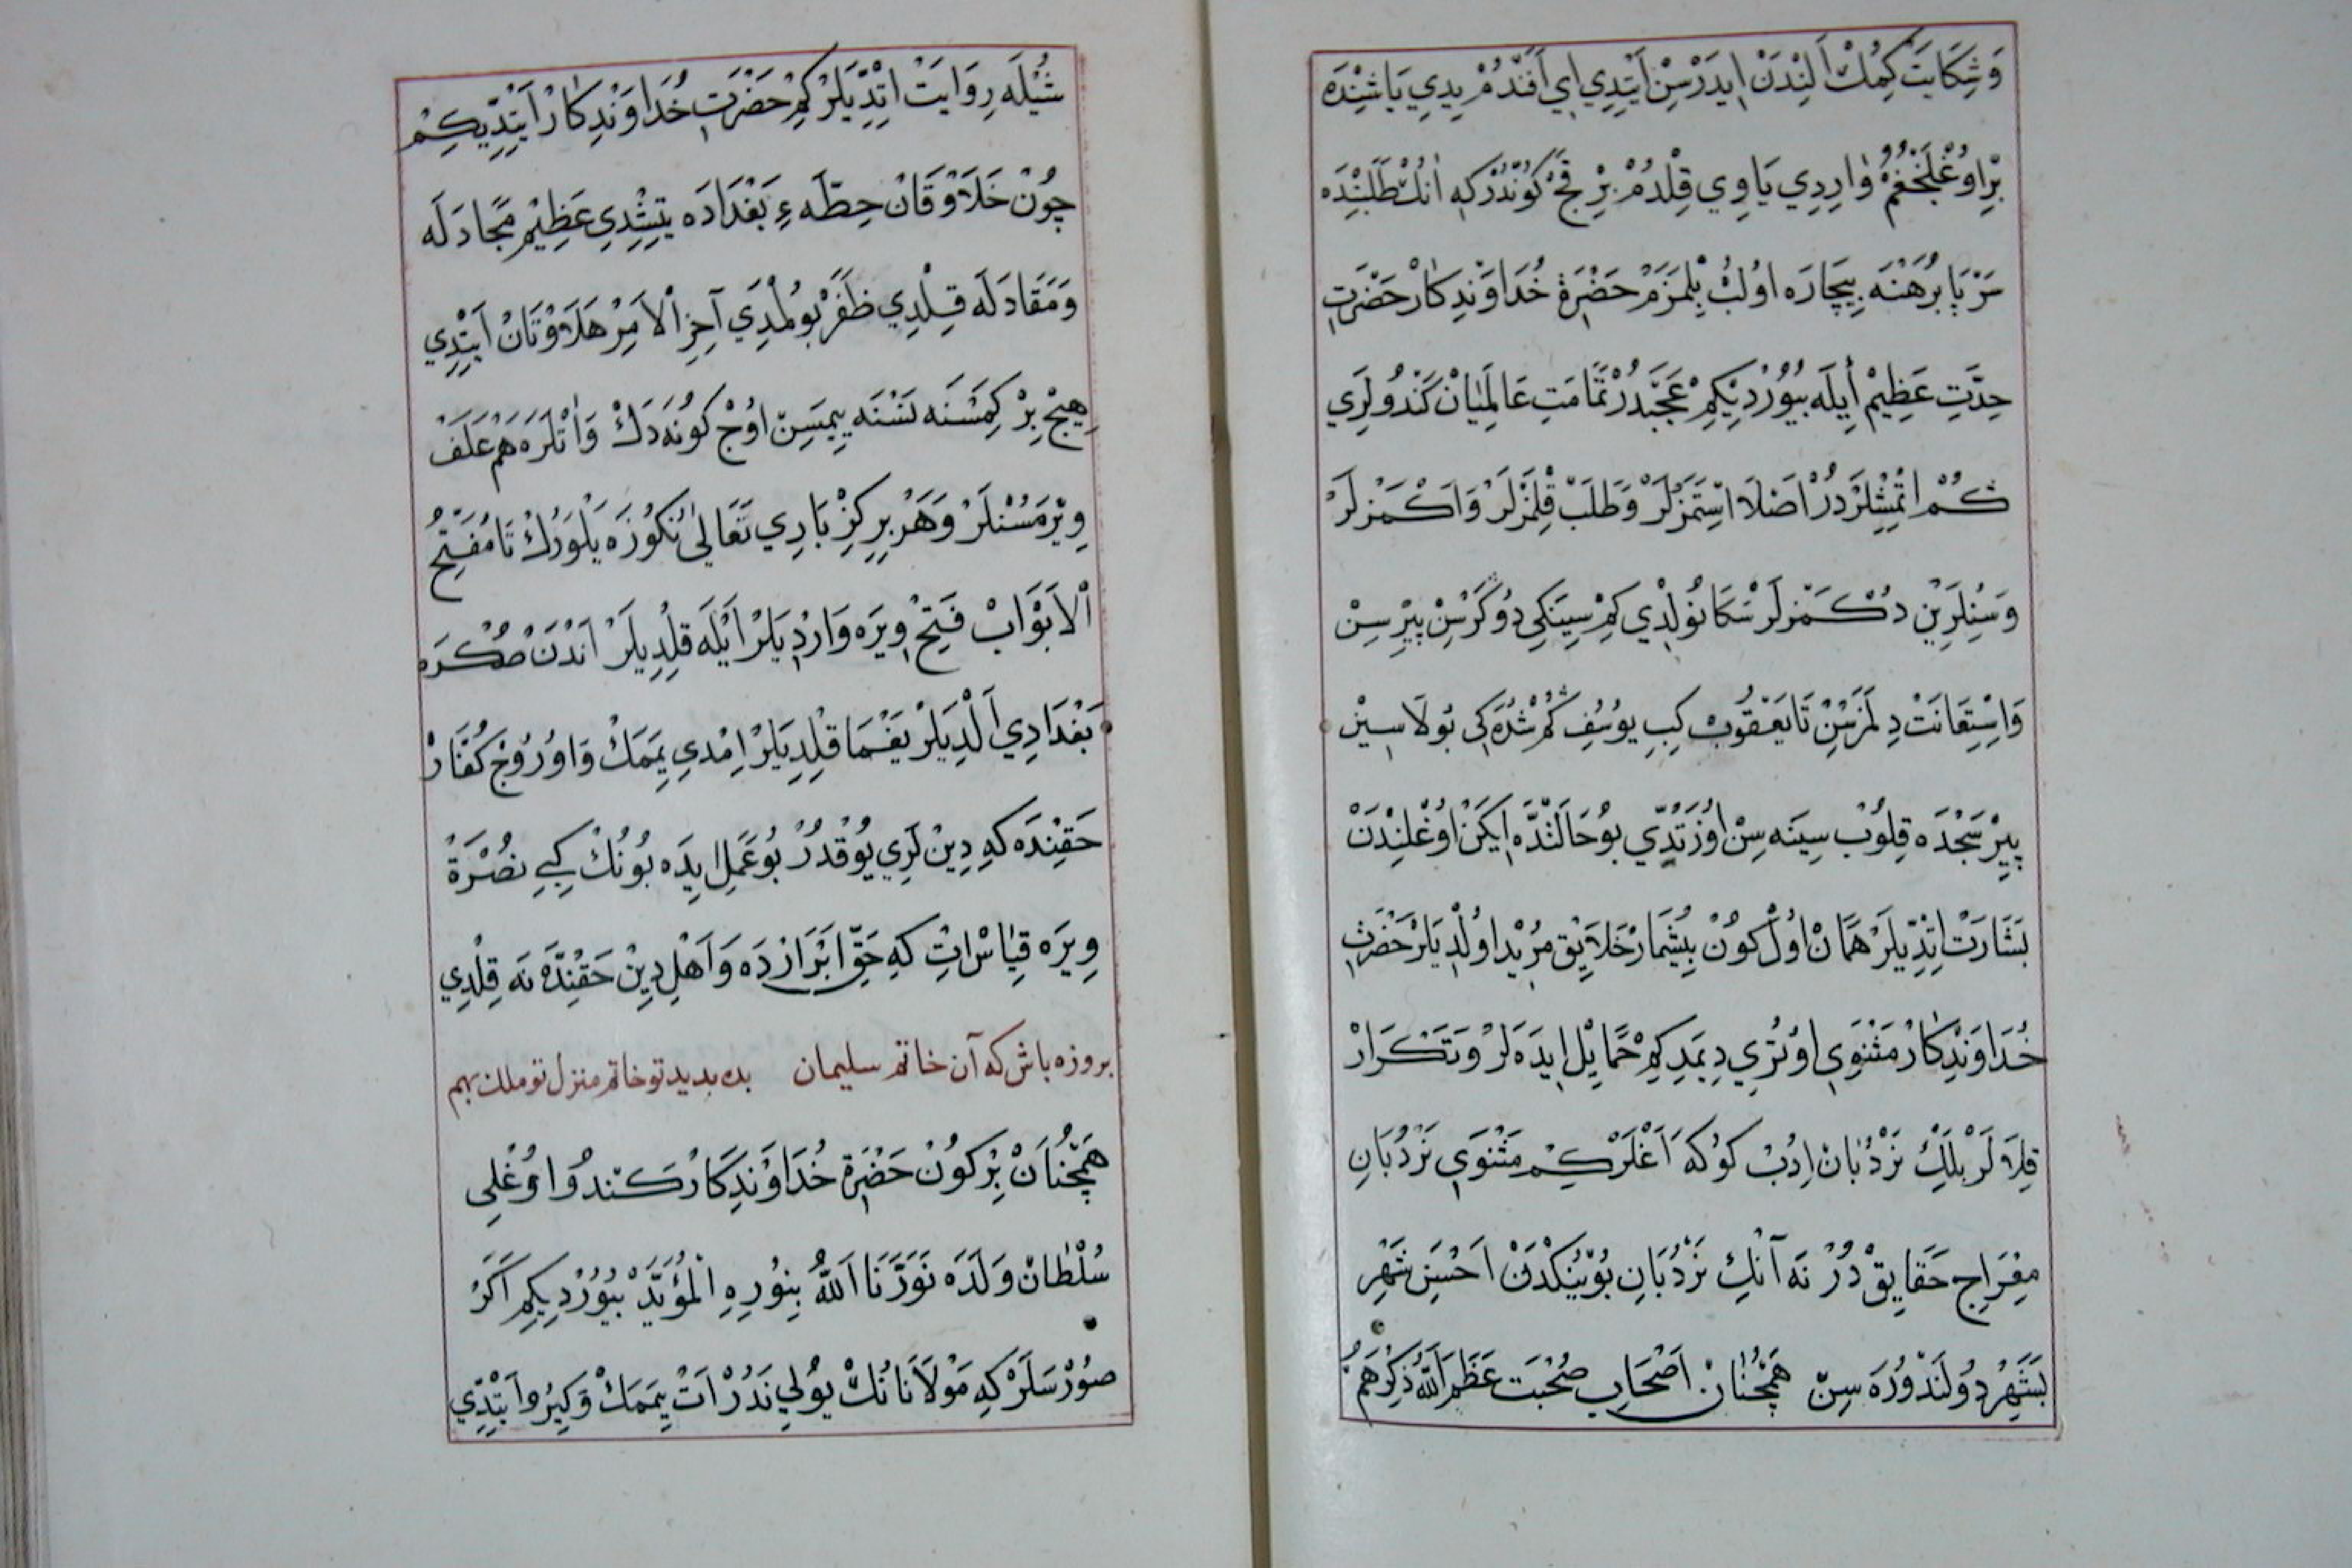 وَشِكَايَتْ كِمُكْ اَلِنْدَنْ اِيدَرْسِنْ اَيْتِدِي اَيْ اَفَنْدُمْ يَدِي يَاشِنْدَه
بْرِ اوُغْلَنْجُغُمْ وَارِدِي يَاوِي قِلْدُمْ بِرْ قَچْ كُونْدُرْكِه اَنُكْ طَلَبِنْدَه
سَرْ پَا بُرَهْنَه بِيچَارَه اوُلُبْ بِلْمَزَمْ حَضْرَةِ خُدَاوَنْدِكَارْ حَضْرَتِ
حِدَّتِ عَظِيمْ اَيِلَه بُيُورْدِيكِمْ عَجَبْدُرْ تَمَامَتِ عَالَمِيَانْ كَنْدُولَرِي
كُمْ اِتْمِشْلَرْدُرْ اَصْلَا اِسْتَمَزْلَرْ وَطَلَبْ قِلْمَزْلَرْ وَاَكْمَزْلَرْ
وَسِنْلَرِينْ دُكْمَزْلَرْ سَكَا نُولْدِي كِمْ سِينَكِي دُوكَرْسِنْ پِيْرِسِنْ
وَاِسْتِعَانَتْ دِلَمَزْسِنْ تَا يَعْقُوبْ كِبِ يُوسُفِ كُمْ شُدَه كِي بُولَاسِيزْ
پِيرْ سَجْدَه قِلُوبْ سِينَه سِنْ اوُزَتْدِي بُو حَالَتْدَه اِيكَنْ اوُغْلِنْدَنْ
بَشَارَتْ اِتْدِيلَرْ هَمَانْ اوُلْ كُونْ بِيشُمَارْ خَلَايِقْ مُرِيدْ اوُلْدِيَلَرْ حَضْرَتِ
خُدَاوَنْدِكَارْ مَثْنَوِي اوُتُرِي دِيمَدِ كِمْ حَمَايِلْ اِيدَه لَرْ وَتَكْرَارْ
قِلَا لَرْ بَلَكِ نَرْدُبَانْ اِدُبْ كُوكَه اَغْلَرْ كِمْ مَثْنَوِي نَرْدُبَانِ
مِعْرَاجِ حَقَايِقْ دُرْ نَه آنْكِ نَرْدُبَانِ بُويْنُكْدَنْ اَحْسَنِ شَهْرِ
بَشَهْرْ دُولَنْدُورَه سِنْ هَمْچُنَانْ اَصْحَابِ صُحْبَتْ عَظَّمَ اللّٰهُ ذِكْرَهُمْ
شُيْلَه رِوَايَتْ اِتْدِيَلَرْ كِمْ حَضْرَتِ خُدَاوَنْدِكَارْ اَيْتِدِّيكِمْ
چُونْ خَلَاوُقَانْ حِطَّهءِ بَغْدَادَه يَتِشْدِي عَظِيمْ مُجَادَلَه
وَمَقَادَلَه قِلْدِي ظَفَرْ بُولْمَدِي آخِرِ اْلاَمِرْ هَلَاوُتَانْ اَيْتِدِي
هِيچْ بِرْ كِمْسَنَه نَسْنَه يِيمَسِنْ اوُچْ كُونَه دَكْ وَاَتْلَرَه هَمْ عَلَفْ
وِيرْمَسُنْلَرْ وَهَرْ بِرِ كِزْ بَارِي تَعَالَى نُكُوزَه يَلْوَرُكْ تَا مُفَتِّحُ
اْلاَبْوَابْ فَتِحْ وِيرَه وَارْدِيَلَرْ اَيْلَه قِلْدِيلَرْ اَنْدَنْ صُكْرَه
بَغْدَادِي اَلْدِيَلَرْ يَغْمَا قِلْدِيَلَرْ اِمْدِي يِمَمَكْ وَاوُرُوچْ كُفَّارْ
حَقِنْدَه كِه دِينْ لَرِي يُوقْدُرْ بُو عَمَلِ اِيدَه بُونُكْ كِبِي نُصْرَةْ
وِيرَه قِيَاسْ اِتْ كِه حَقِّ اَبْرَارْدَه وَاَهْلِ دِينْ حَقِنْدَه نَه قِلْدِي
بروزه باش كه آن خاتم سليمان بده بديد تو خاتم منزل تو ملك بهم
هَمْچُنَانْ بِرْ كُونْ حَضْرَةِ خُدَاوَنْدِكَارْ كَنْدُو اوُغْلِي
سُلْطَانْ وَلَدَه نَوَّرَنَا اَللّٰهُ بِنُورِهِ الْمُؤَيَّدْ بُيُورْدِيكِمْ اَكَرْ
صُورْسَلَرْ كِه مَوْلَانَا نُكْ يُولِي نَدُرْ اَتْ يِمَمَكْ وَكِيرُو اَيْتِدِي